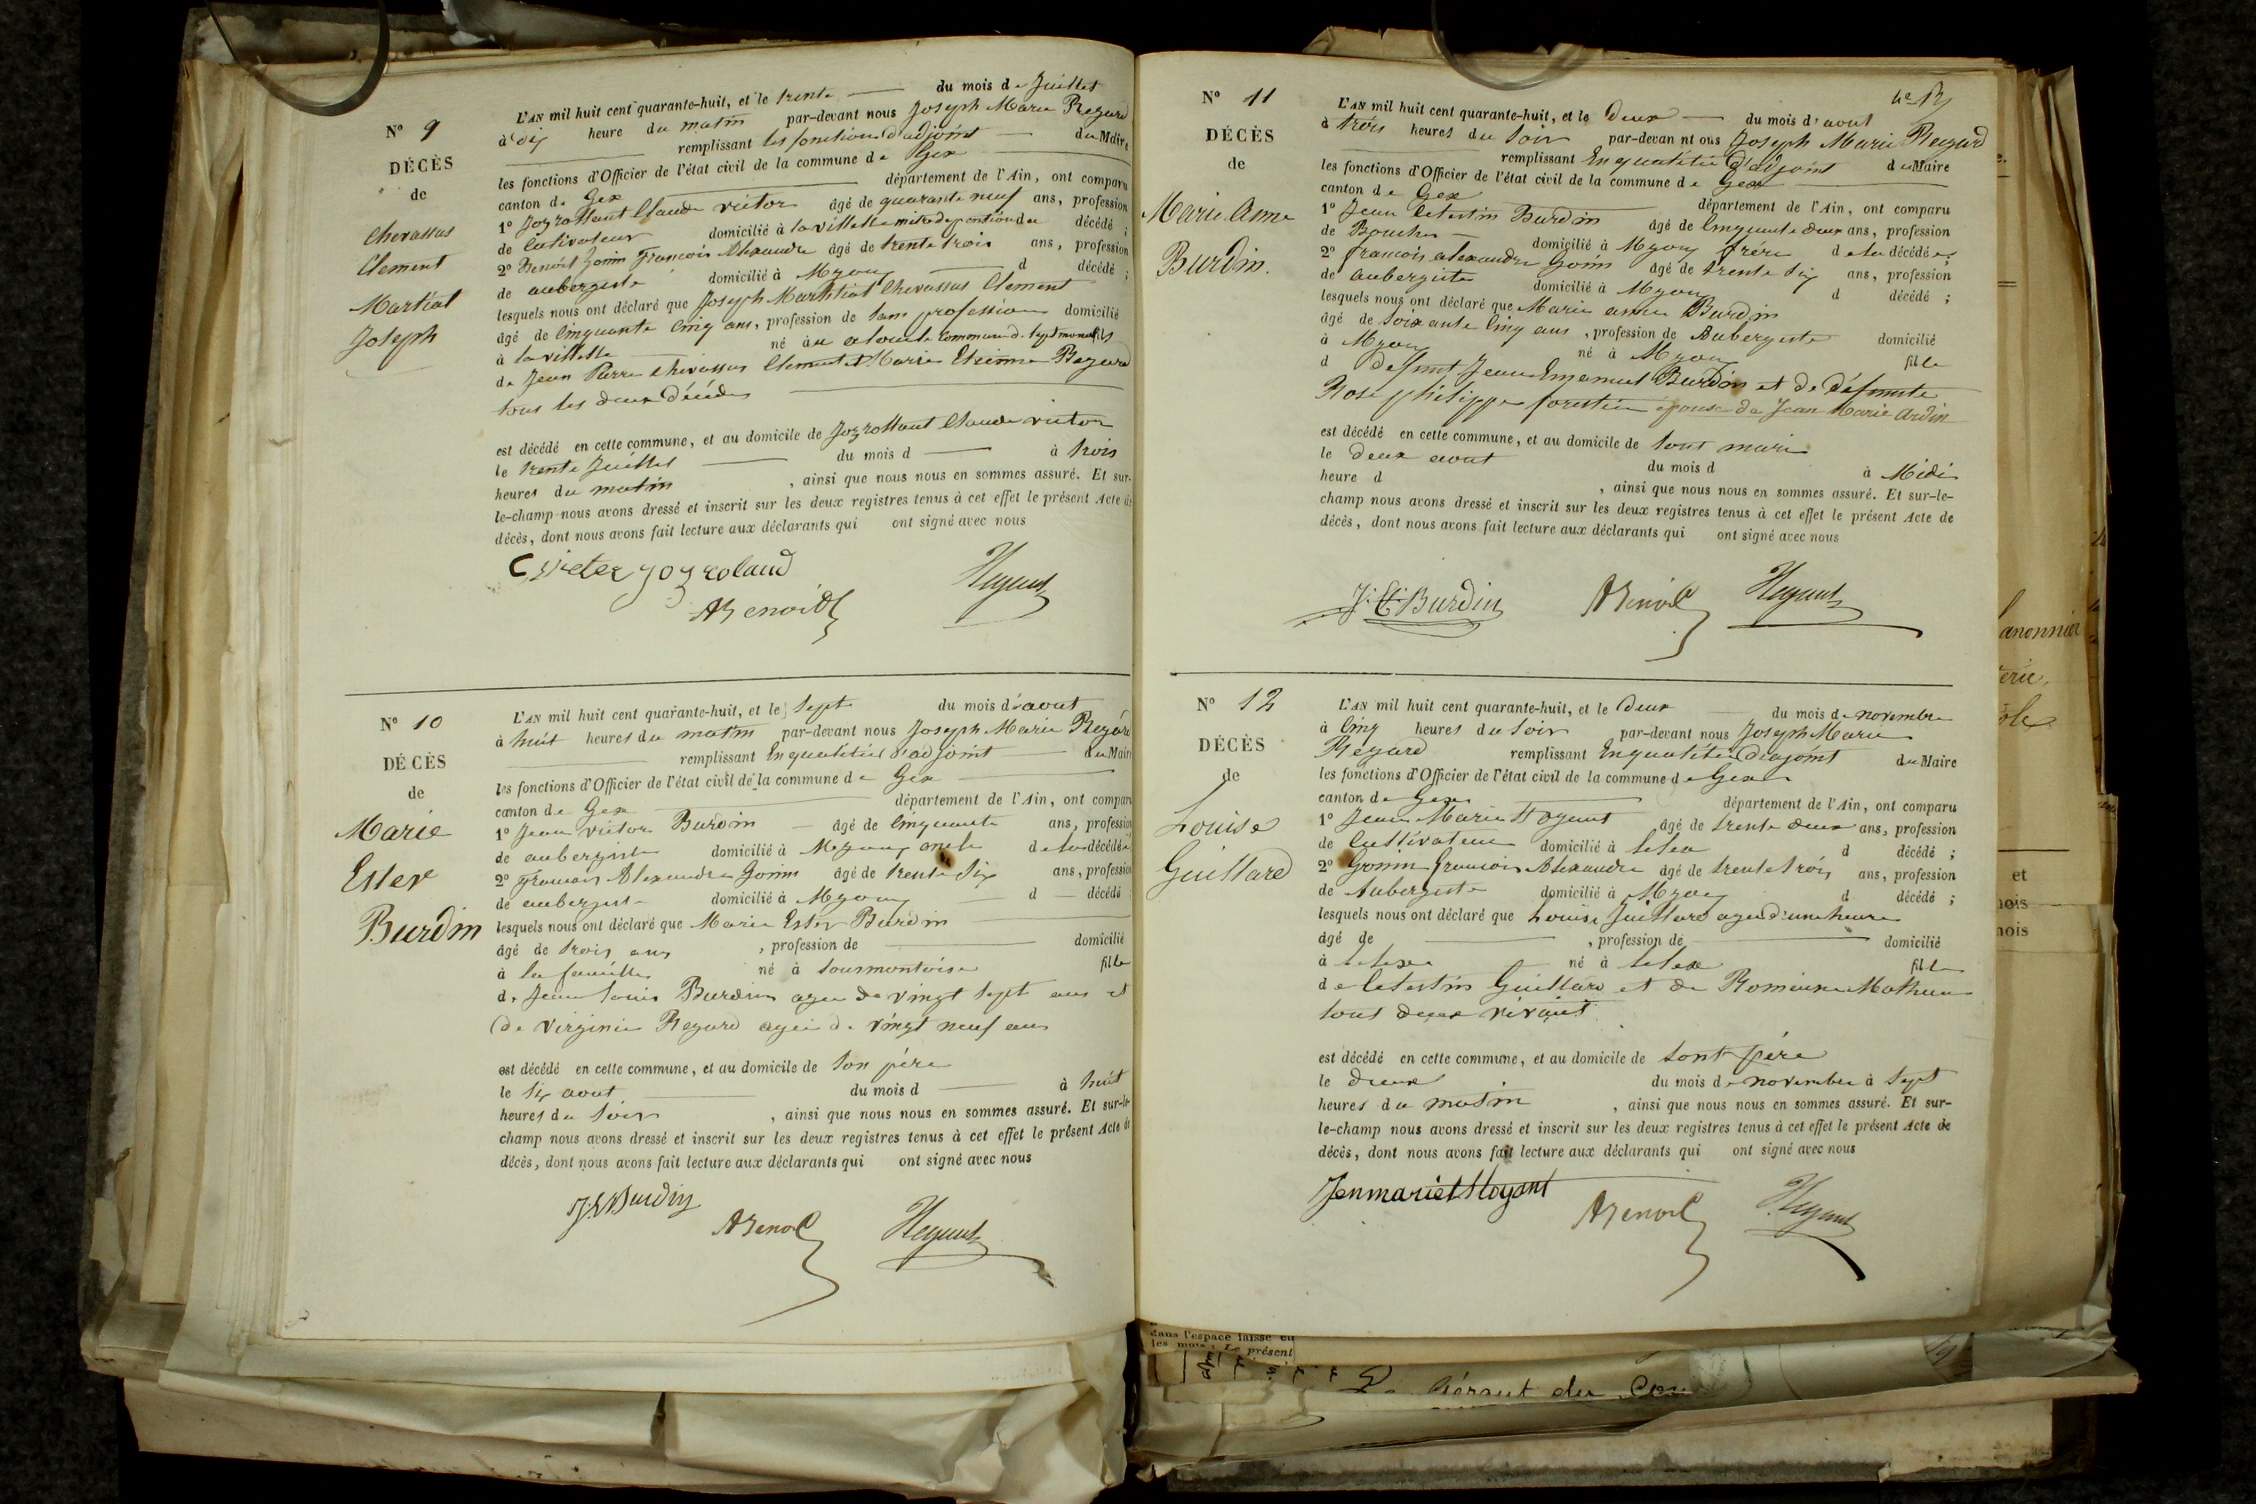 N° 9
DÉCÈS
de
Chevassus
Clement
Martial
Joseph
L'AN mil huit cent quarante-huit, et le trente du mois de Juillet
à dix heure du matin par-devant nous Joseph Marie Regard
remplissant les fonctions d'adjoint du Maire
les fonctions d'Officier de l'état civil de la commune de Gex
canton de Gex département de l'Ain, ont comparu
1° Claude victor âgé de quarante neuf ans, profession
de Cultivateur domicilié à la villette décédé ;
2° Benoit Gonin François Alexandre âgé de trente trois ans, profession
de aubergiste domicilié à Myoux d décédé ;
lesquels nous ont déclaré que Joseph Martial Chevassus Clement
âgé de Cinquante Cinq ans, profession de sans profession domicilié
à la villette né à commune de Septmoncel fils
de Jean Pierre Chevassus Clement et Marie Etienne Regard
tous les deux Décédés
est décédé en cette commune, et au domicile de Claude victor
le trente Juillet du mois d à trois
heures du matin , ainsi que nous nous en sommes assuré. Et sur-
le-champ nous avons dressé et inscrit sur les deux registres tenus à cet effet le présent Acte de
décès, dont nous avons fait lecture aux déclarants qui ont signé avec nous
N° 10
DÉCÈS
de
Marie
Ester
Burdin
L'AN mil huit cent quarante-huit, et le Sept du mois d'aout
à huit heures du matin par-devant nous Joseph Marie Regard
remplissant En qualitée d'adjoint du Maire
les fonctions d'Officier de l'état civil de la commune de Gex
canton de Gex département de l'Ain, ont comparu
1° Jean victor Burdin âgé de Cinquante ans, profession
de aubergiste domicilié à Myoux oncle de la décédée
2° François Alexandre Gonin âgé de trente Six ans, profession
de aubergiste domicilié à Myoux d décédé
lesquels nous ont déclaré que Marie Ester Burdin
âgé de trois ans , profession de domicilié
à la faucille né à fille
de Jean Louis Burdin agee de vingt Sept ans et
de Virginie Regard agée de vingt neuf ans
est décédé en cette commune, et au domicile de Son père
le Six aout du mois d à huit
heures du Soir , ainsi que nous nous en sommes assuré. Et sur-le-
champ nous avons dressé et inscrit sur les deux registres tenus à cet effet le présent Acte de
décès, dont nous avons fait lecture aux déclarants qui ont signé avec nous
N° 11
DÉCÈS
de
Marie Anne
Burdin.
L'AN mil huit cent quarante-huit, et le Deux du mois d'aout
à trois heures du Soir par-devan nt ous Joseph Marie Regard
remplissant En qualitée D'adjoint du Maire
les fonctions d'Officier de l'état civil de la commune de Gex
canton de Gex département de l'Ain, ont comparu
1° Jean Celestin Burdin âgé de Cinquante deux ans, profession
de domicilié à Myoux frére de la décédée ;
2° francois alexandre Gonin âgé de trente Six ans, profession
de aubergiste domicilié à Myoux d décédé ;
lesquels nous ont déclaré que Marie anne Burdin
âgé de Soixante Cinq ans , profession de Aubergiste domicilié
à Myoux né à Myoux fille
d defunt Jean Emanuel Burdin et de Défunte
Rose philippe forestier épouse de Jean Marie
est décédé en cette commune, et au domicile de Sont mari
le deux aout du mois d à Midi
heure d , ainsi que nous nous en sommes assuré. Et sur-le-
champ nous avons dressé et inscrit sur les deux registres tenus à cet effet le présent Acte de
décès, dont nous avons fait lecture aux déclarants qui ont signé avec nous
J. C. Burdin
N° 12
DÉCÈS
de
Louise
Guillard
L'AN mil huit cent quarante-huit, et le deux du mois de novembre
à Cinq heures du Soir par-devant nous Joseph Marie
Regard remplissant En qualitée D'ajoint du Maire
les fonctions d'Officier de l'état civil de la commune de Gex
canton de Gex département de l'Ain, ont comparu
1° Jean Marie âgé de trente deux ans, profession
de Cultivateur domicilié à lelex d décédé ;
2° Gonin francois Alexandre âgé de trente trois ans, profession
de Aubergiste domicilié à Myoux d décédé ;
lesquels nous ont déclaré que Louise Guillard agee d'une heure
âgé de , profession de domicilié
à lelex né à lelex fille
de Celestin Guillard et de Romaine
tout deux vivant
est décédé en cette commune, et au domicile de Sont père
le deux du mois de novembre à Sept
heures du matin , ainsi que nous nous en sommes assuré. Et sur-
le-champ nous avons dressé et inscrit sur les deux registres tenus à cet effet le présent Acte de
décès, dont nous avons fait lecture aux déclarants qui ont signé avec nous
et
dans l'espace laissé en